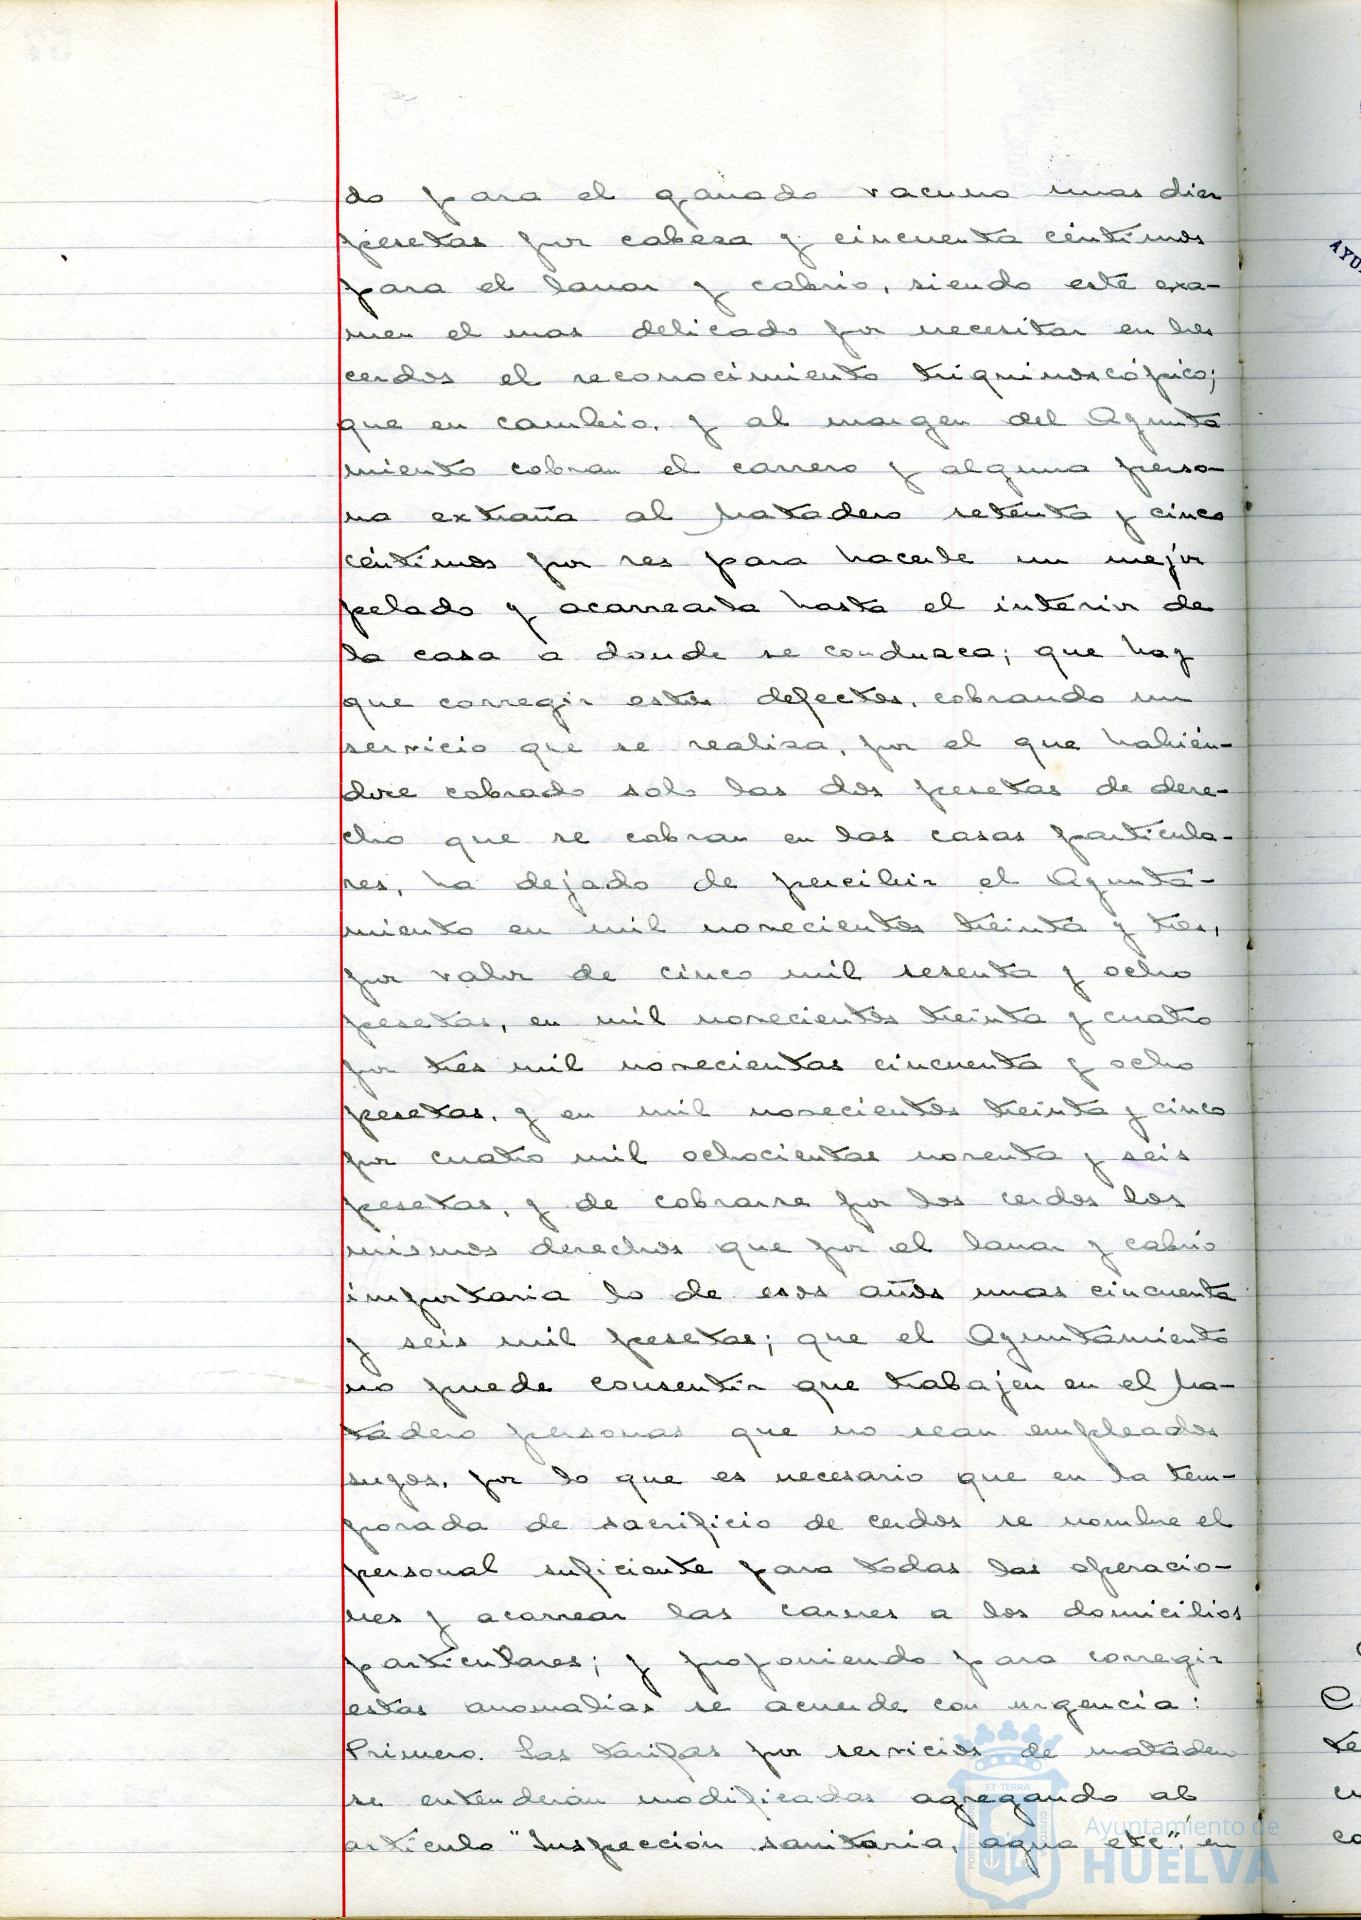 do para el ganado vacuno unas diez
pesetas por cabeza y cincuenta céntimos
para el lanar y cabrio, siendo este exa-
men el mas delicado por necesitar en los
cerdos el reconocimiento triquinoscópico;
que en cambio, y al margen del Ayunta
miento cobran el carrero y alguna perso-
na extraña al Matadero setenta y cinco
céntimos por res para hacerle un mejor
pelado y acarrearla hasta el interior de
la casa a donde se conduzca; que hay
que corregir estos defectos, cobrando un
servicio que se realiza, por el que habién-
dose cobrado solo las dos pesetas de dere-
cho que se cobran en las casas particula-
res, ha dejado de percibir el Ayunta-
miento en mil novecientos treinta y tres,
por valor de cinco mil sesenta y ocho
pesetas, en mil novecientos treinta y cuatro
por tres mil novecientas cincuenta y ocho
pesetas, y en mil novecientos treinta y cinco
por cuatro mil ochocientas noventa y seis
pesetas, y de cobrarse por los cerdos los
mismos derechos que por el lanar y cabrio
importaria lo de esos años unas cincuenta
y seis mil pesetas; que el Ayuntamiento
no puede consentir que trabajen en el Ma-
tadero personas que no sean empleados
suyos, por lo que es necesario que en la tem-
porada de sacrificio de cerdos se nombre el
personal suficiente para todas las operacio-
nes y acarrear las carnes a los domicilios
particulares; y proponiendo para corregir
estas anomalias se acuerde con urgencia:
Primero. Las tarifas por servicios de matadero
se entenderán modificadas agregando al
articulo "Inspección sanitaria, agua etc", en
Ayuntamiento de
HUELVA